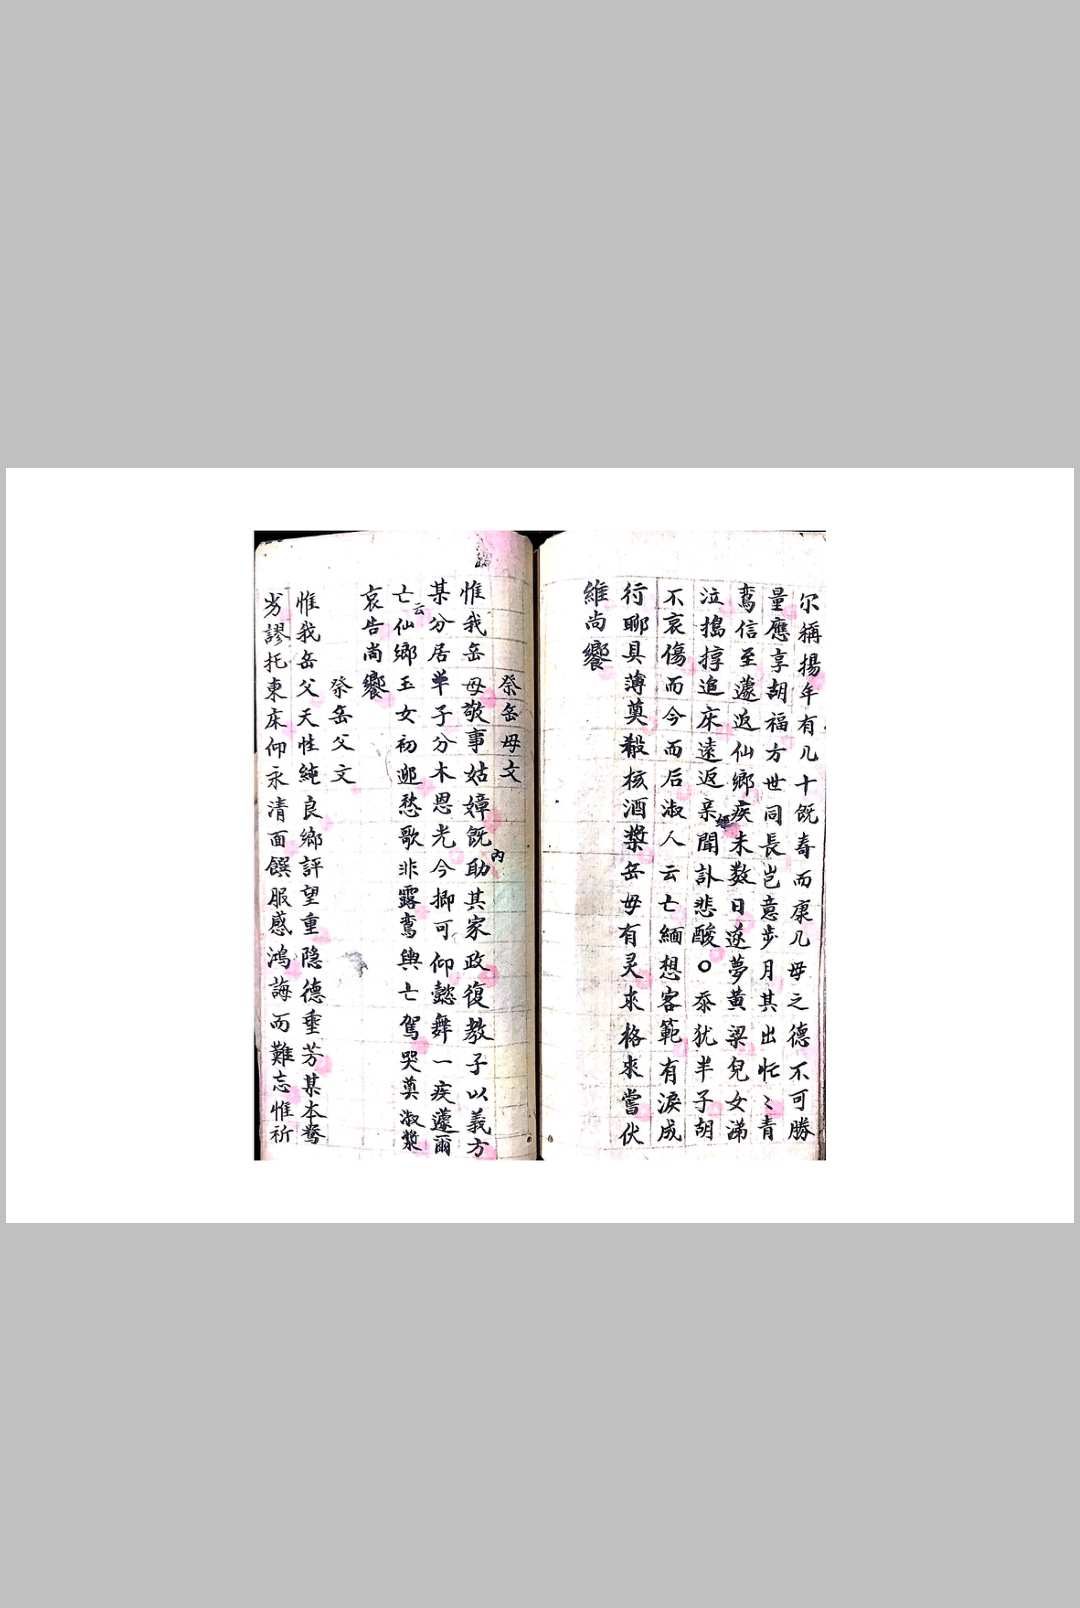 尔稱揚年有几十既寿而康凡母之德不可勝
量應享胡福方世同長岂意步月其出忙〻青
鸾信至蘧返仙鄉疾未数日遂夢黄梁兒女涕
泣搗摔追床遠返亲聞訃悲酸〇忝犹半子胡
不哀傷而今而后淑人云亡緬想客範有淚成
行聊具薄奠殽核酒漿岳母有灵來格來嘗伏
維尚饗
祭岳母文
惟我岳母敬事姑嫜既助其家政復教子以義方
内
某分居半子分木思光今抑可仰懿舞一疾蘧爾
亡仙鄉玉女初迎愁歌非露鸾輿亡駕哭奠淑漿
云
哀告尚饗
祭岳父文
惟我岳父天性純良鄉評望重隐德垂芳某本驽
劣謬托東床仰永清面饌服感鴻誨而難忘惟祈